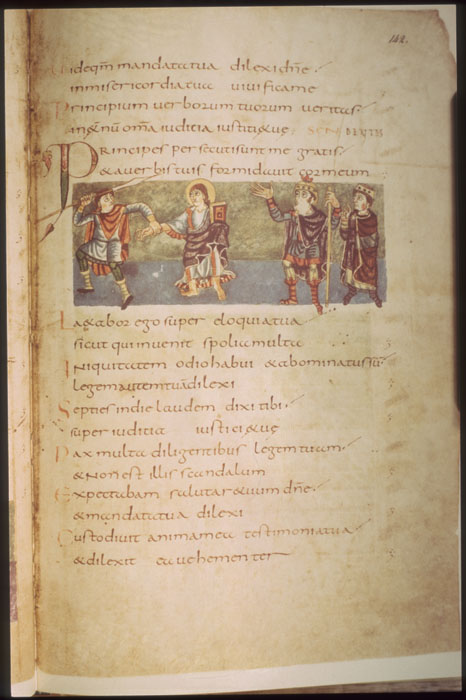 142.
Videqm mandatatua dilexi dne.
inmisericordiatua vivificame
Principium verborum tuorum veritas.
in&ernu oma iudicia iustiti&uę;
Principes persecutisuntme gratis.
&averbistuis formidavit cormeum
La&abor ego super eloquiatua
sicut quiinvenit spoliamulta
Iniquitatem odiohabui &abominatussu
legemautemtuadilexi
Septies indie laudem dixi tibi.
super iudicia iustici&uę
Pax multa diligentibus legemtuam.
&Nonest illis scandalum
Expectabam salutar&uum dne.
&mandatatua dilexi
Custodivit animamea testimoniatua.
&dilexit eavehementer